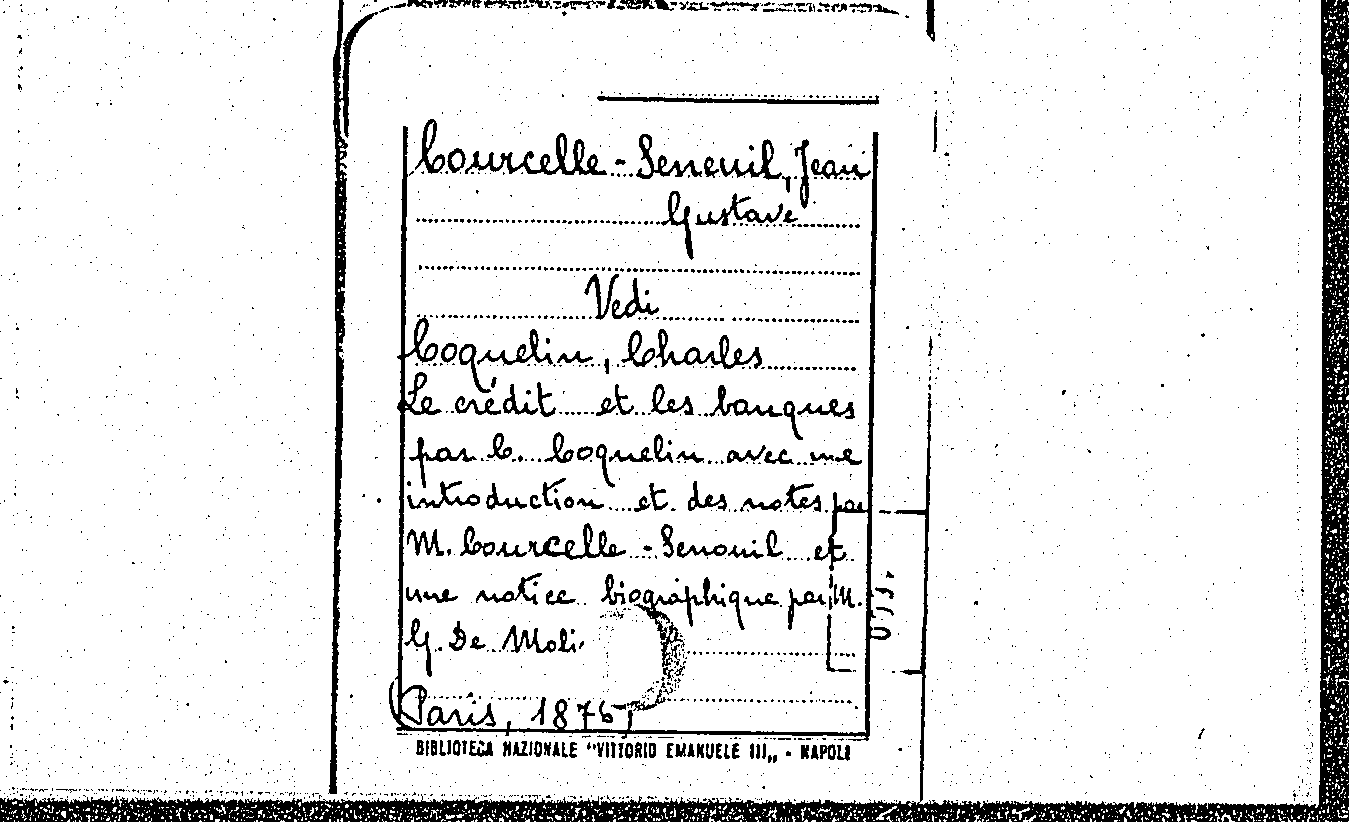 Courcelle-Seneuil, Jean
Gustave
Vedi
Coquelin, Charles
Le crédit et les banques
par C. Coquelin avec une
introduction et des notes par
M. Courcelle-Senouil et
une notice biographique par M.
G. De Moli
Paris, 1876,
BIBLIOTECA NAZIONALE "VITTORIO EMANUELE III„ - NAPOLI